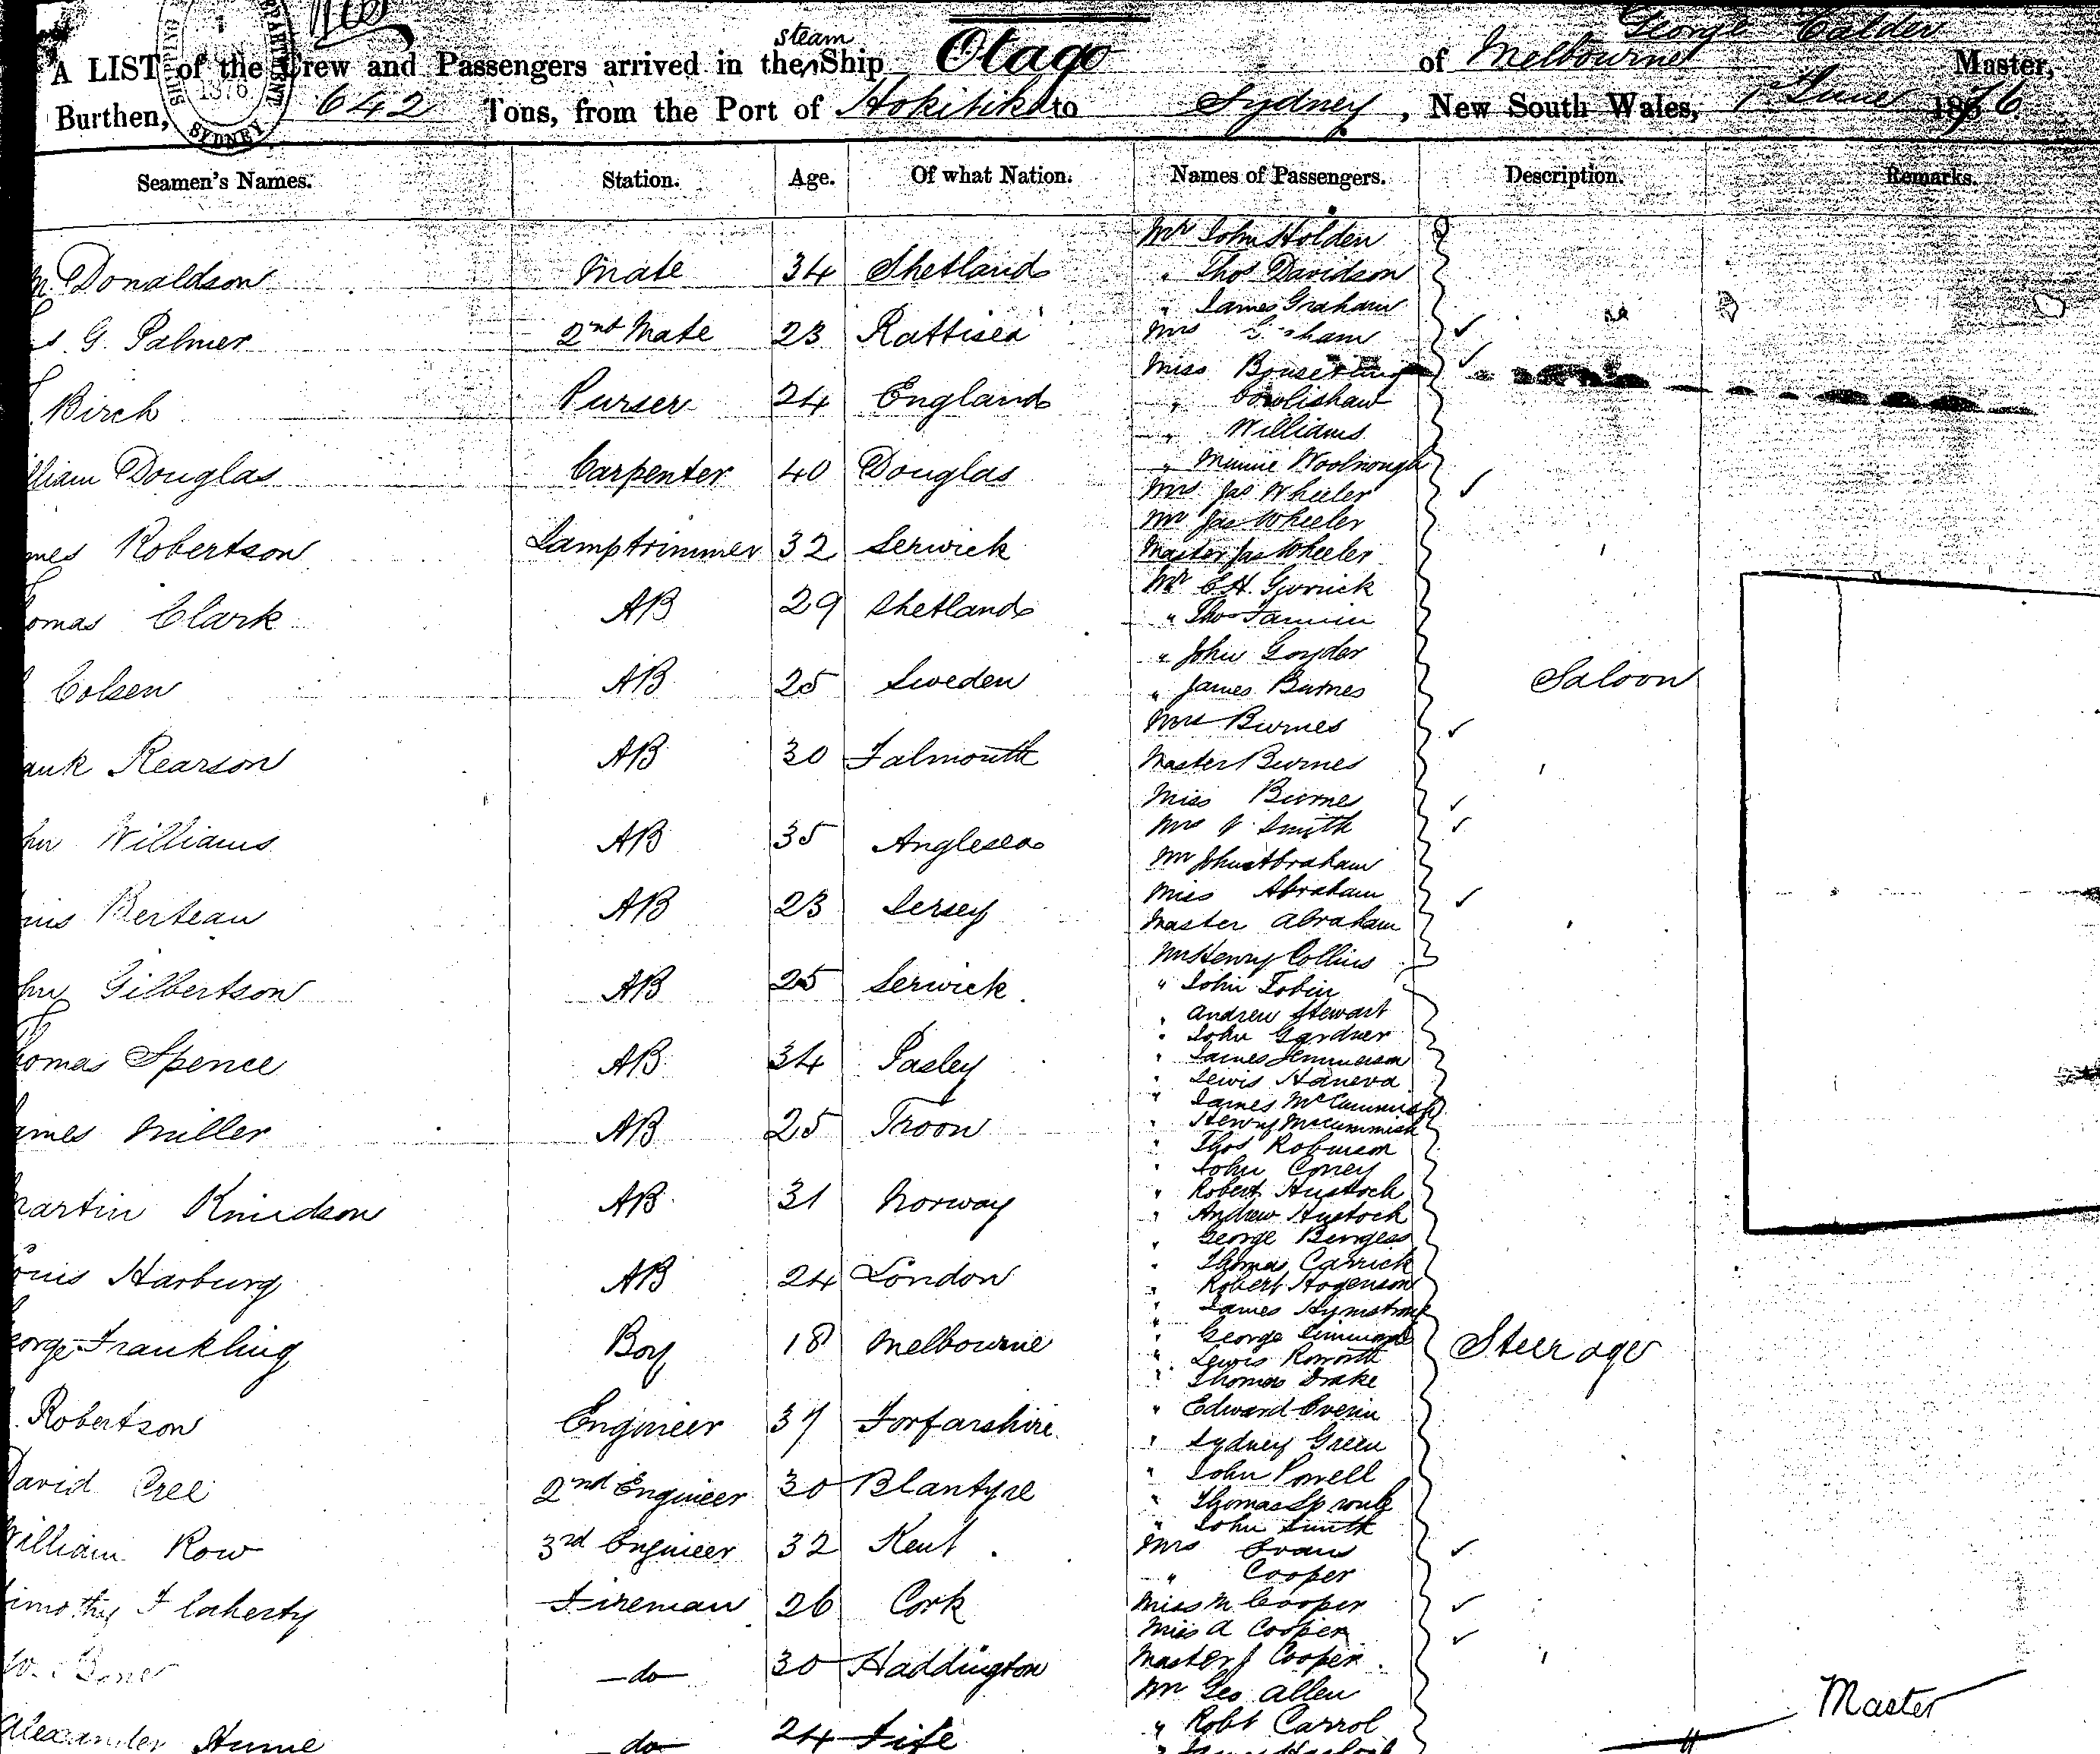 George Calder
A LIST of the Crew and Passengers arrived in the steam Ship Otago of Melbourne Master,
Burthen, 642 Tons, from the Port of Hokitika to Sydney, New South Wales, 1 June 1876
SHIPPING DEPARTMENT 1876 SYDNEY
Seamen's Names. Station. Age. Of what Nation. Names of Passengers. Description. Remarks.
Mr John Holden
Donaldson Mate 34 Shetland
" Thos Davidson
" James Graham
G. Palmer 2nd Mate 23 Mrs
Miss
Birch Purser 24 England
" Cowlishaw
" Williams
lliam Douglas Carpenter 40 Douglas
" Minnie Woolnough
Mrs Jas Wheeler
Mr Jas Wheeler
mes Robertson Lamptrimmer 32 Lerwick
Master Jas Wheeler
Mr C.H.
omas Clark AB 29 Shetland
" Thos
" John Goyder
Colsen AB 25 Sweden Saloon
" James Burnes
Mrs Burnes
ank Rearson AB 30 Falmouth
Master Burnes
Miss Burnes
Mrs J Smith
hn Williams AB 35 Anglesea
Mr John Abraham
Miss Abraham
uis Berteau AB 23 Jersey
Master Abraham
Mr Henry Collins
hn Gilbertson AB 25 Lerwick
" John Tobin
" Andrew Stewart
" John Gardner
homas Spence AB 34 Pasley
" James
" Lewis Haneva
" James McCummish
ames Miller AB 25 Troon
" Henry McCummish
" Thos Robinson
" John Coney
" Robert Hustock
artin Knudson AB 31 Norway
" Andrew Hustock
" George Burgess
" Thomas Carrick
ouis Harburg AB 24 London
" Robert Hogenson
" James
eorge Frankling Boy 18 Melbourne
" George Steerage
" Lewis
" Thomas Drake
Robertson Engineer 37 Forfarshire
" Edward
" Sydney Green
" John Powell
David Cree 2nd Engineer 30 Blantyre
" Thomas Sproule
" John Smith
William Row 3rd Engineer 32 Kent
Mrs Evans
" Cooper
imothy Flaherty Fireman 26 Cork
Miss M Cooper
Miss A Cooper
do 30 Haddington
Master J Cooper
Mr Geo Allen
Master
" Robt Carrol
Alexander Hume do 24 Fife
" James